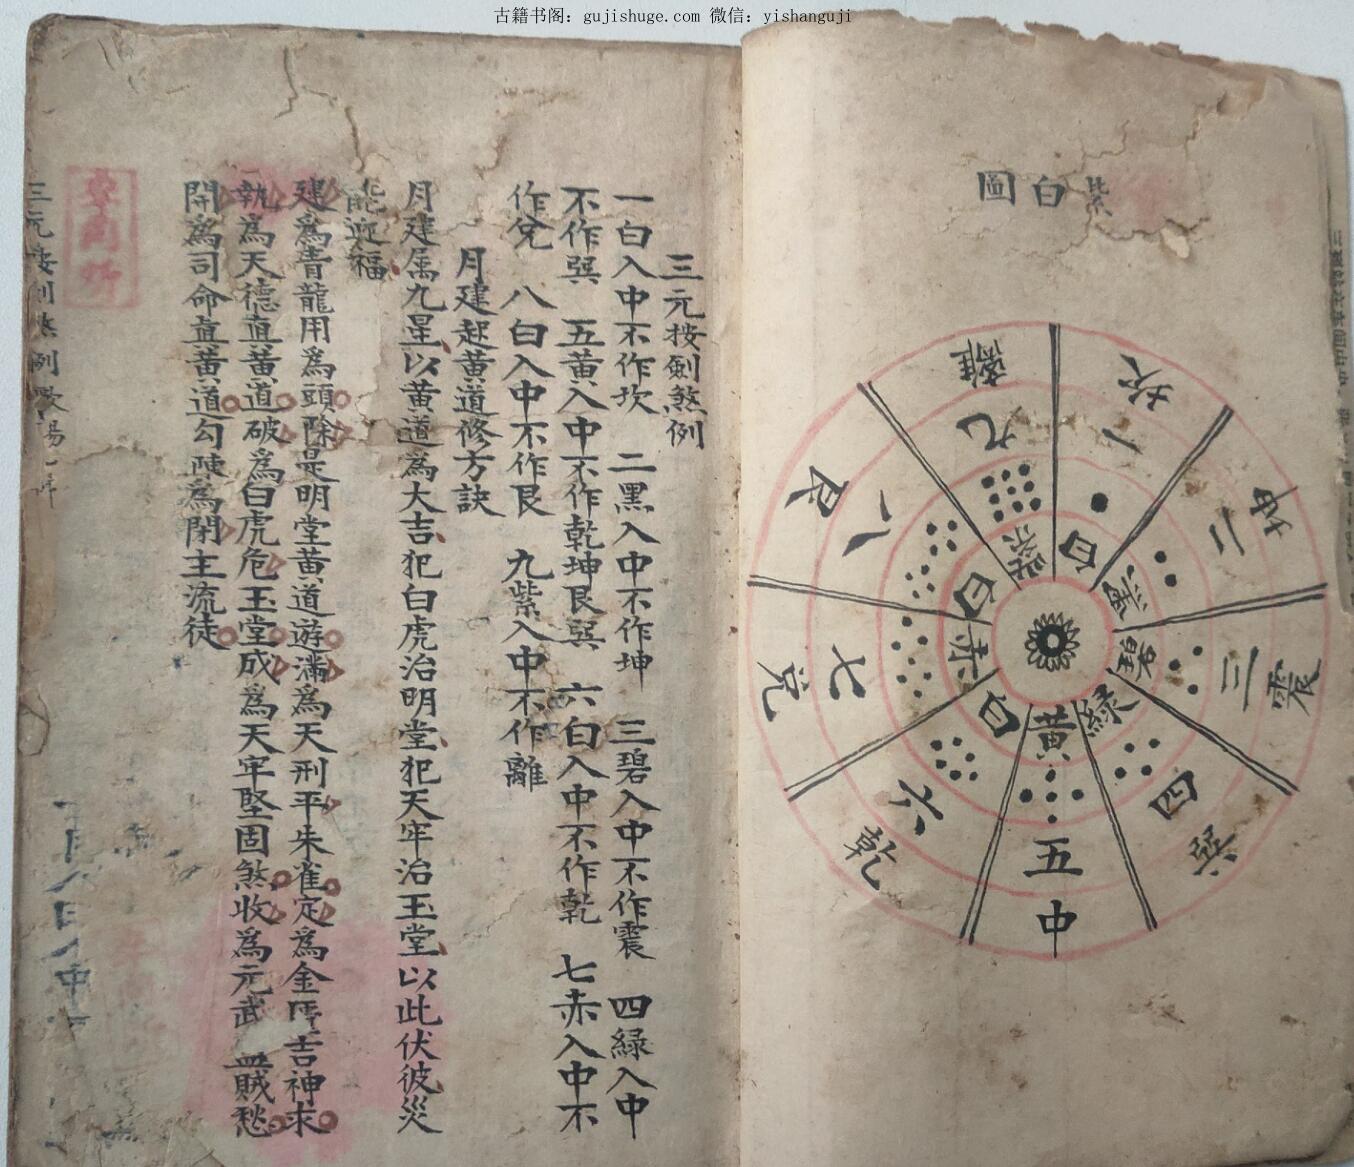 古籍书阁：gujishuge.com 微信：yishanguji
紫白圖
坎 一 白
坤 二 黑
震 三 碧
巽 四 綠
中 五 黃
乾 六 白
兌 七 赤
艮 八 白
離 九 紫
三元按劍煞例
一白入中不作坎 二黑入中不作坤 三碧入中不作震 四緑入中
不作巽 五黄入中不作乾坤艮巽 六白入中不作乾 七赤入中不
作兌 八白入中不作艮 九紫入中不作離
月建起黄道修方訣
月建属九星以黄道為大吉犯白虎治明堂犯天牢治玉堂以此伏彼災
能迎福
建爲青龍用爲頭除是明堂黄道遊滿爲天刑平朱雀定爲金匱吉神求
執爲天德直黄道破爲白虎危玉堂成爲天牢堅固煞收爲元武 賊愁
開爲司命眞黄道勾陳爲閉主流徒
三元